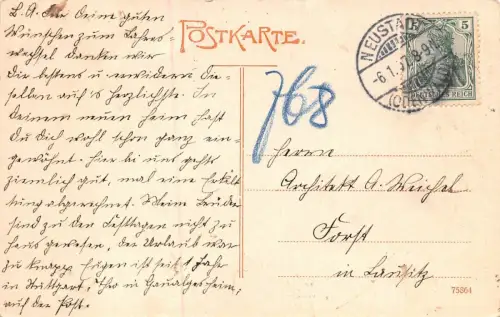 L. A. Für Deine guten
Wünschen zum Jahres-
wechsel danken wir
Dir bestens u. erwidern die-
selben auf's herzlichste. In
Deinem neuen Heim hast
Du Dich wohl schon ganz ein-
gewöhnt. Hier bei uns gehts
ziemlich gut, mal eine Erkält-
ung abgerechnet. Meine Brüder
sind zu den Festtagen nicht zu
Haus gewesen, der Urlaub war
zu knapp. Eugen ist seit 1 Jahr
in Stuttgart, Theo in
auf der Post.
POSTKARTE.
NEUSTADT
6.1.
(ODENWALD)
5
REICH
768
Herrn
Architekt A. Weichel
Forst
in Lausitz
75864